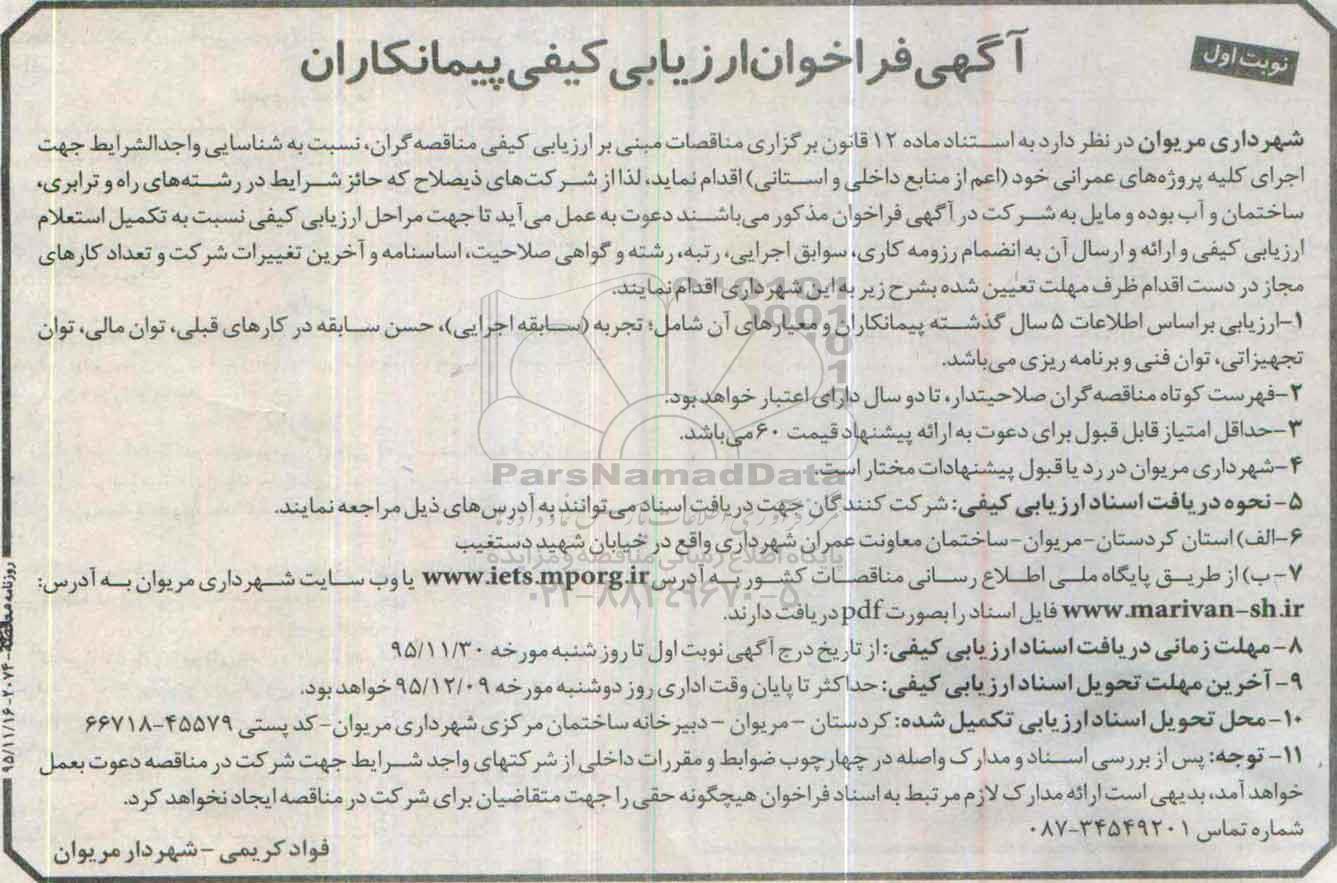 نوبت اول
آگهی فراخوان ارزیابی کیفی پیمانکاران
شهرداری مریوان در نظر دارد به استناد ماده ۱۲ قانون برگزاری مناقصات مبنی بر ارزیابی کیفی مناقصه گران، نسبت به شناسایی واجدالشرایط جهت
اجرای کلیه پروژه‌های عمرانی خود (اعم از منابع داخلی و استانی) اقدام نماید، لذا از شرکت‌های ذیصلاح که حائز شرایط در رشته‌های راه و ترابری،
ساختمان و آب بوده و مایل به شرکت در آگهی فراخوان مذکور می‌باشند دعوت به عمل می‌آید تا جهت مراحل ارزیابی کیفی نسبت به تکمیل استعلام
ارزیابی کیفی و ارائه و ارسال آن به انضمام رزومه کاری، سوابق اجرایی، رتبه، رشته و گواهی صلاحیت، اساسنامه و آخرین تغییرات شرکت و تعداد کارهای
مجاز در دست اقدام ظرف مهلت تعیین شده بشرح زیر به این شهرداری اقدام نمایند.
۱-ارزیابی براساس اطلاعات ۵ سال گذشته پیمانکاران و معیارهای آن شامل؛ تجربه (سابقه اجرایی)، حسن سابقه در کارهای قبلی، توان مالی، توان
تجهیزاتی، توان فنی و برنامه ریزی می‌باشد.
۲-فهرست کوتاه مناقصه گران صلاحیتدار، تا دو سال دارای اعتبار خواهد بود.
۳-حداقل امتیاز قابل قبول برای دعوت به ارائه پیشنهاد قیمت ۶۰ می‌باشد.
۴-شهرداری مریوان در رد یا قبول پیشنهادات مختار است.
ParsNamadData
۵- نحوه دریافت اسناد ارزیابی کیفی: شرکت کنندگان جهت دریافت اسناد می‌توانند به آدرس‌های ذیل مراجعه نمایند.
۶-الف) استان کردستان-مریوان-ساختمان معاونت عمران شهرداری واقع در خیابان شهید دستغیب
پایگاه اطلاع رسانی مناقصه و مزایده
۷-ب) از طریق پایگاه ملی اطلاع رسانی مناقصات کشور به آدرس www.iets.mporg.ir یا وب سایت شهرداری مریوان به آدرس:
۰۲۱-۸۸۳۴۹۶۷۰-۵
www.marivan-sh.ir فایل اسناد را بصورت pdf دریافت دارند.
۸-مهلت زمانی دریافت اسناد ارزیابی کیفی: از تاریخ درج آگهی نوبت اول تا روز شنبه مورخه ۹۵/۱۱/۳۰
۹- آخرین مهلت تحویل اسناد ارزیابی کیفی: حداکثر تا پایان وقت اداری روز دوشنبه مورخه ۹۵/۱۲/۰۹ خواهد بود.
۱۰-محل تحویل اسناد ارزیابی تکمیل شده: کردستان - مریوان - دبیرخانه ساختمان مرکزی شهرداری مریوان-کد پستی ۴۵۵۷۹-۶۶۷۱۸
۱۱- توجه: پس از بررسی اسناد و مدارک واصله در چهارچوب ضوابط و مقررات داخلی از شرکتهای واجد شرایط جهت شرکت در مناقصه دعوت بعمل
خواهد آمد، بدیهی است ارائه مدارک لازم مرتبط به اسناد فراخوان هیچگونه حقی را جهت متقاضیان برای شرکت در مناقصه ایجاد نخواهد کرد.
شماره تماس ۳۴۵۴۹۲۰۱-۰۸۷
فواد کریمی - شهردار مریوان
روزنامه -۲۰۷۴-۹۵/۱۱/۱۶